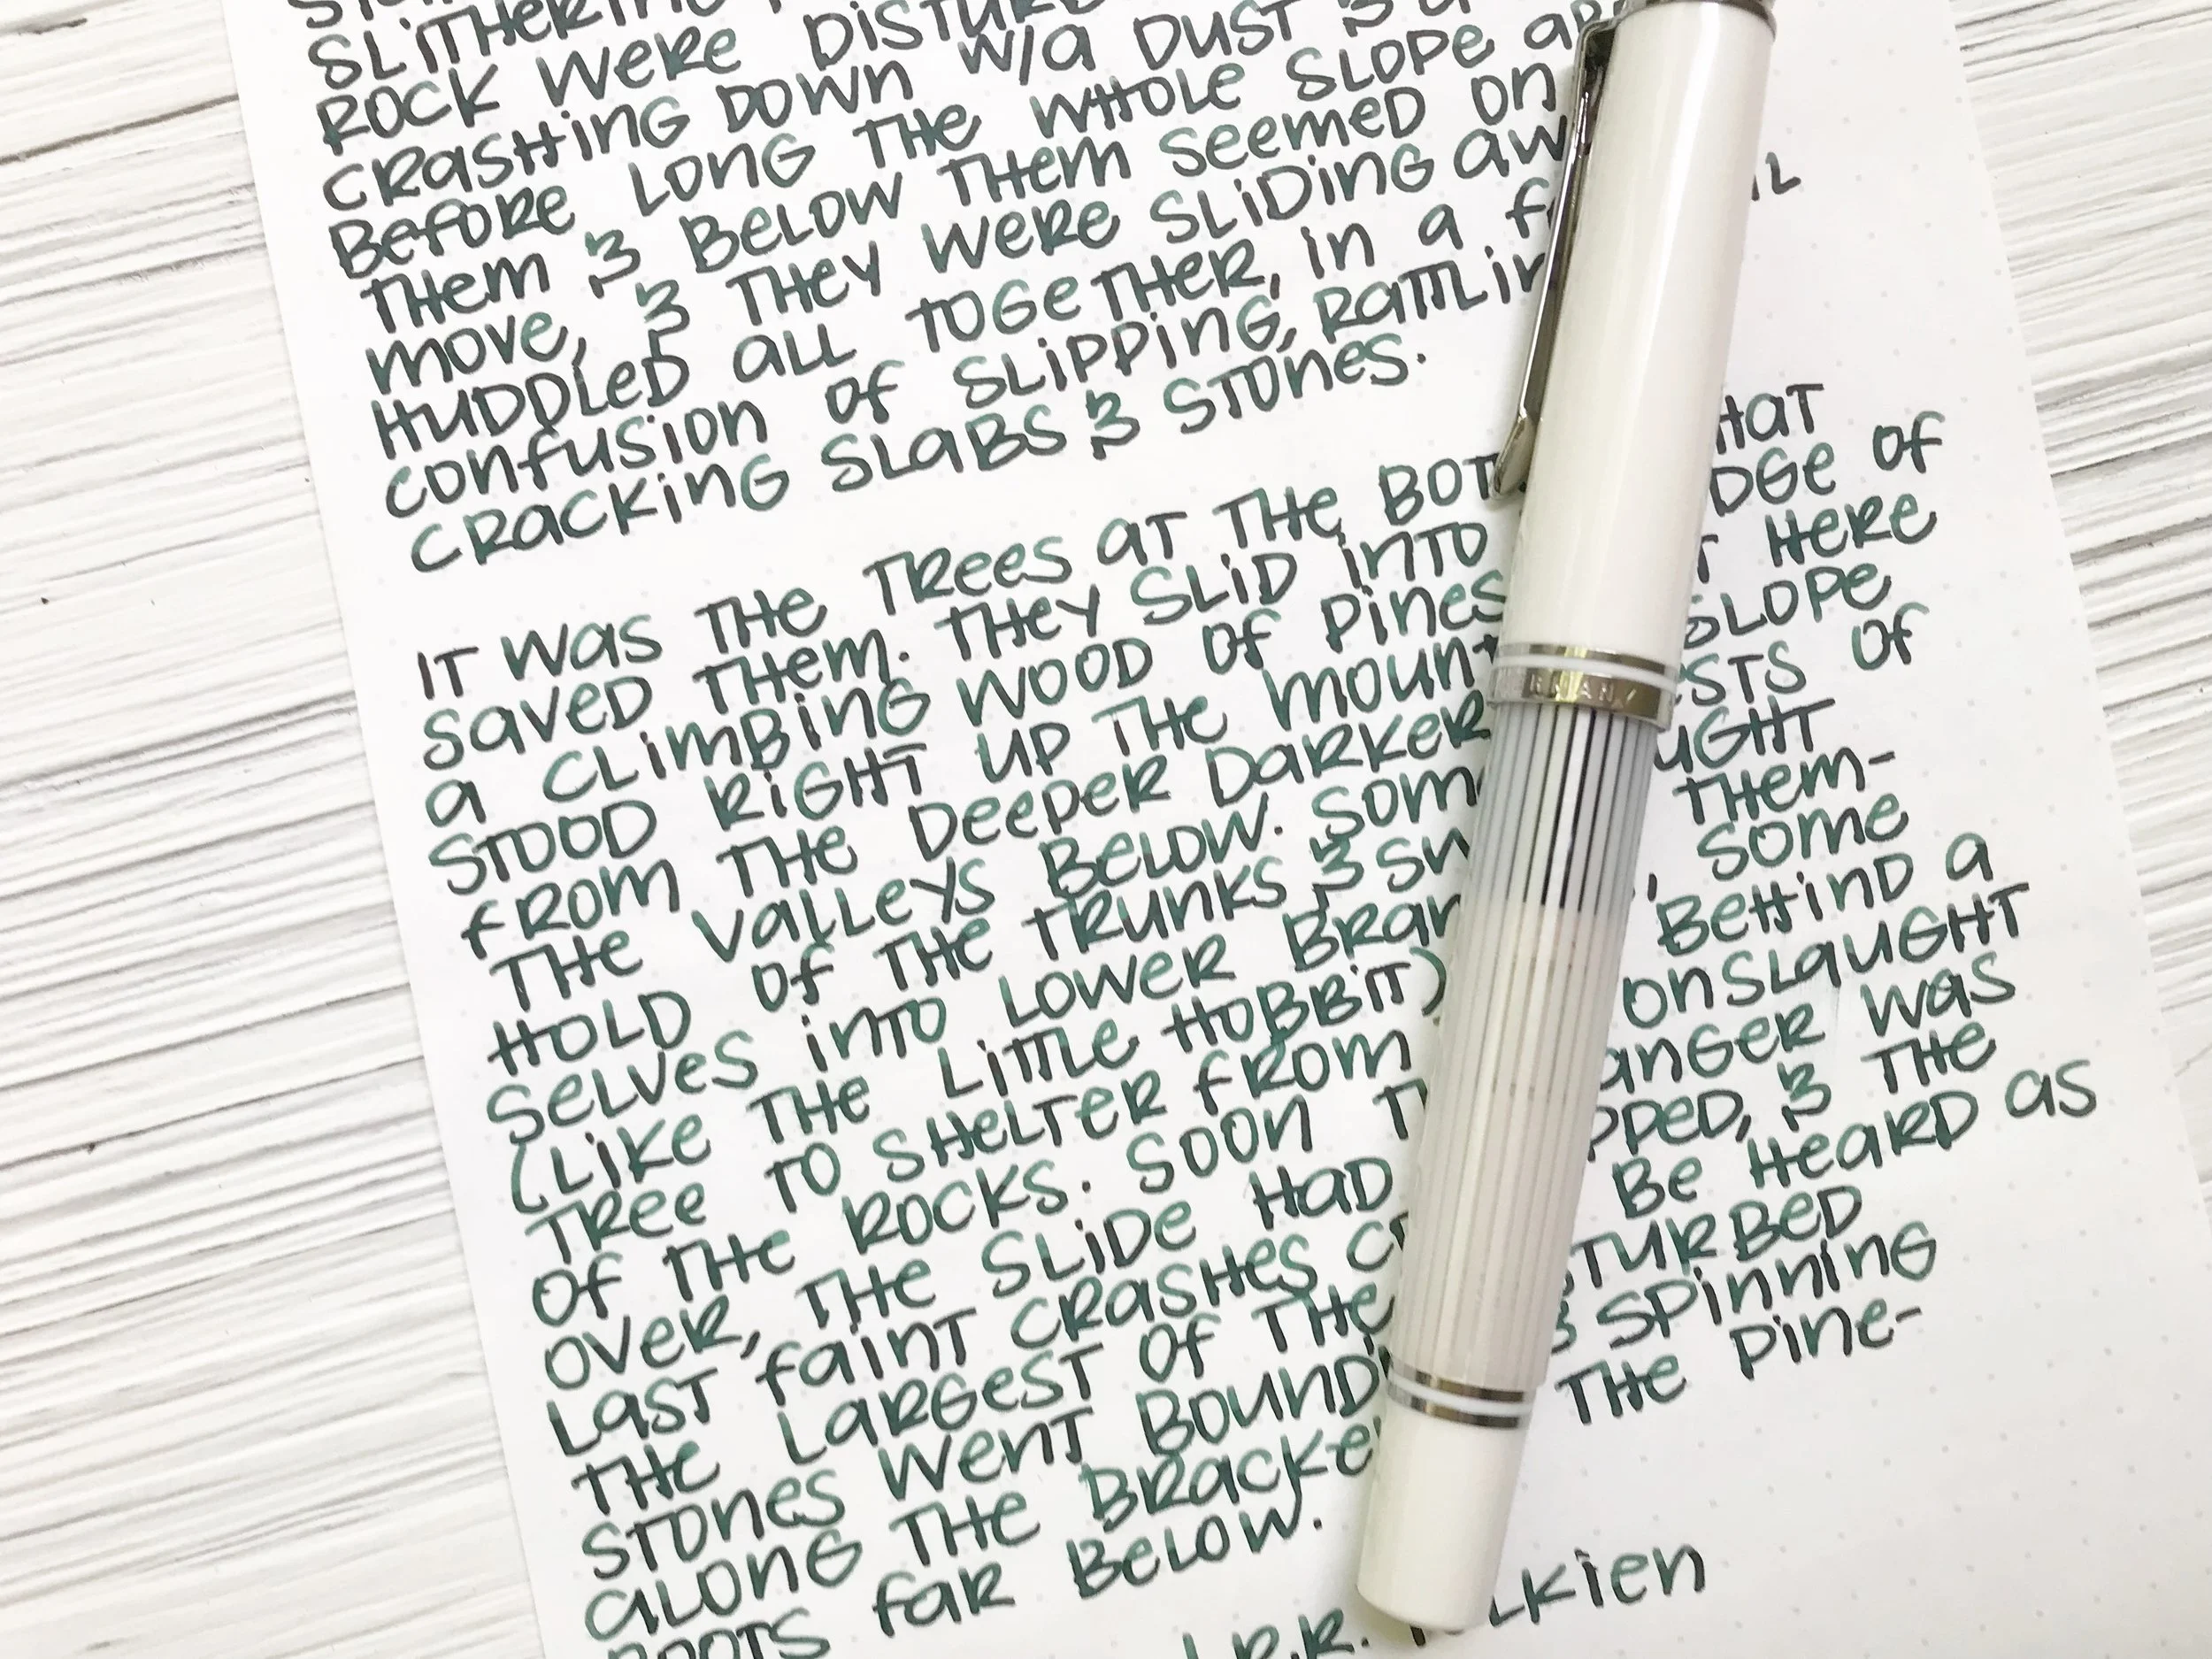 SLITHERING
ROCK WERE DISTURB
CRASHING DOWN W/A DUST &
BEFORE LONG THE WHOLE SLOPE
THEM & BELOW THEM SEEMED ON
MOVE, & THEY WERE SLIDING AW
HUDDLED ALL TOGETHER, IN A
CONFUSION OF SLIPPING, RATTLIN
CRACKING SLABS & STONES.
IT WAS THE TREES AT THE BOT HAT
SAVED THEM. THEY SLID INTO DGE OF
A CLIMBING WOOD OF PINES T HERE
STOOD RIGHT UP THE MOUNT SLOPE
FROM THE DEEPER DARKER ESTS OF
THE VALLEYS BELOW. SOM UGHT
HOLD OF THE TRUNKS & SW THEM-
SELVES INTO LOWER BRAN , SOME
(LIKE THE LITTLE HOBBIT) BEHIND A
TREE TO SHELTER FROM ONSLAUGHT
OF THE ROCKS. SOON T ANGER WAS
OVER, THE SLIDE HAD PPED, & THE
LAST FAINT CRASHES C BE HEARD AS
THE LARGEST OF THE STURBED
STONES WENT BOUND & SPINNING
ALONG THE BRACKE THE PINE-
ROOTS FAR BELOW.
J.R.R. T LKIEN